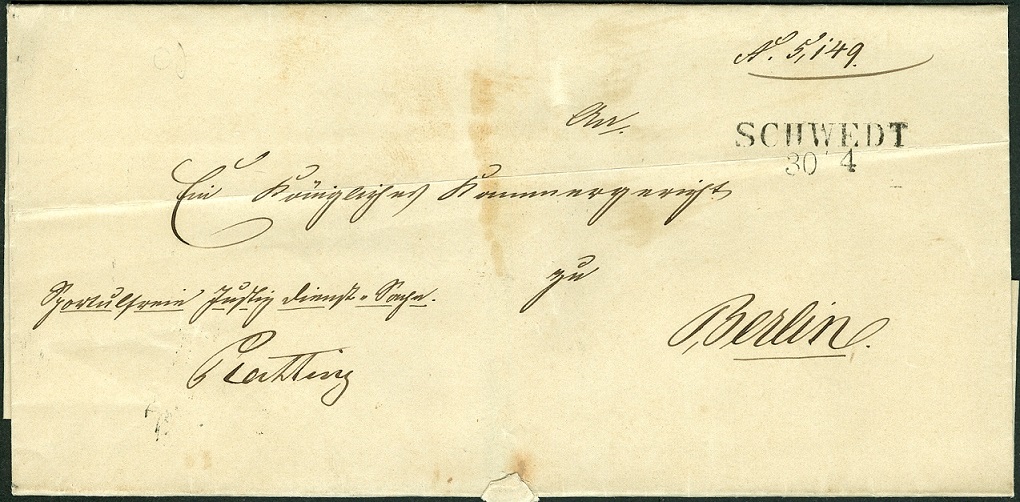 N. 5,149.
An.
SCHWEDT
30 4
Ein Königliches Kammergericht
zu
Sportulfreie Justiz Dienst-Sache.
Berlin.